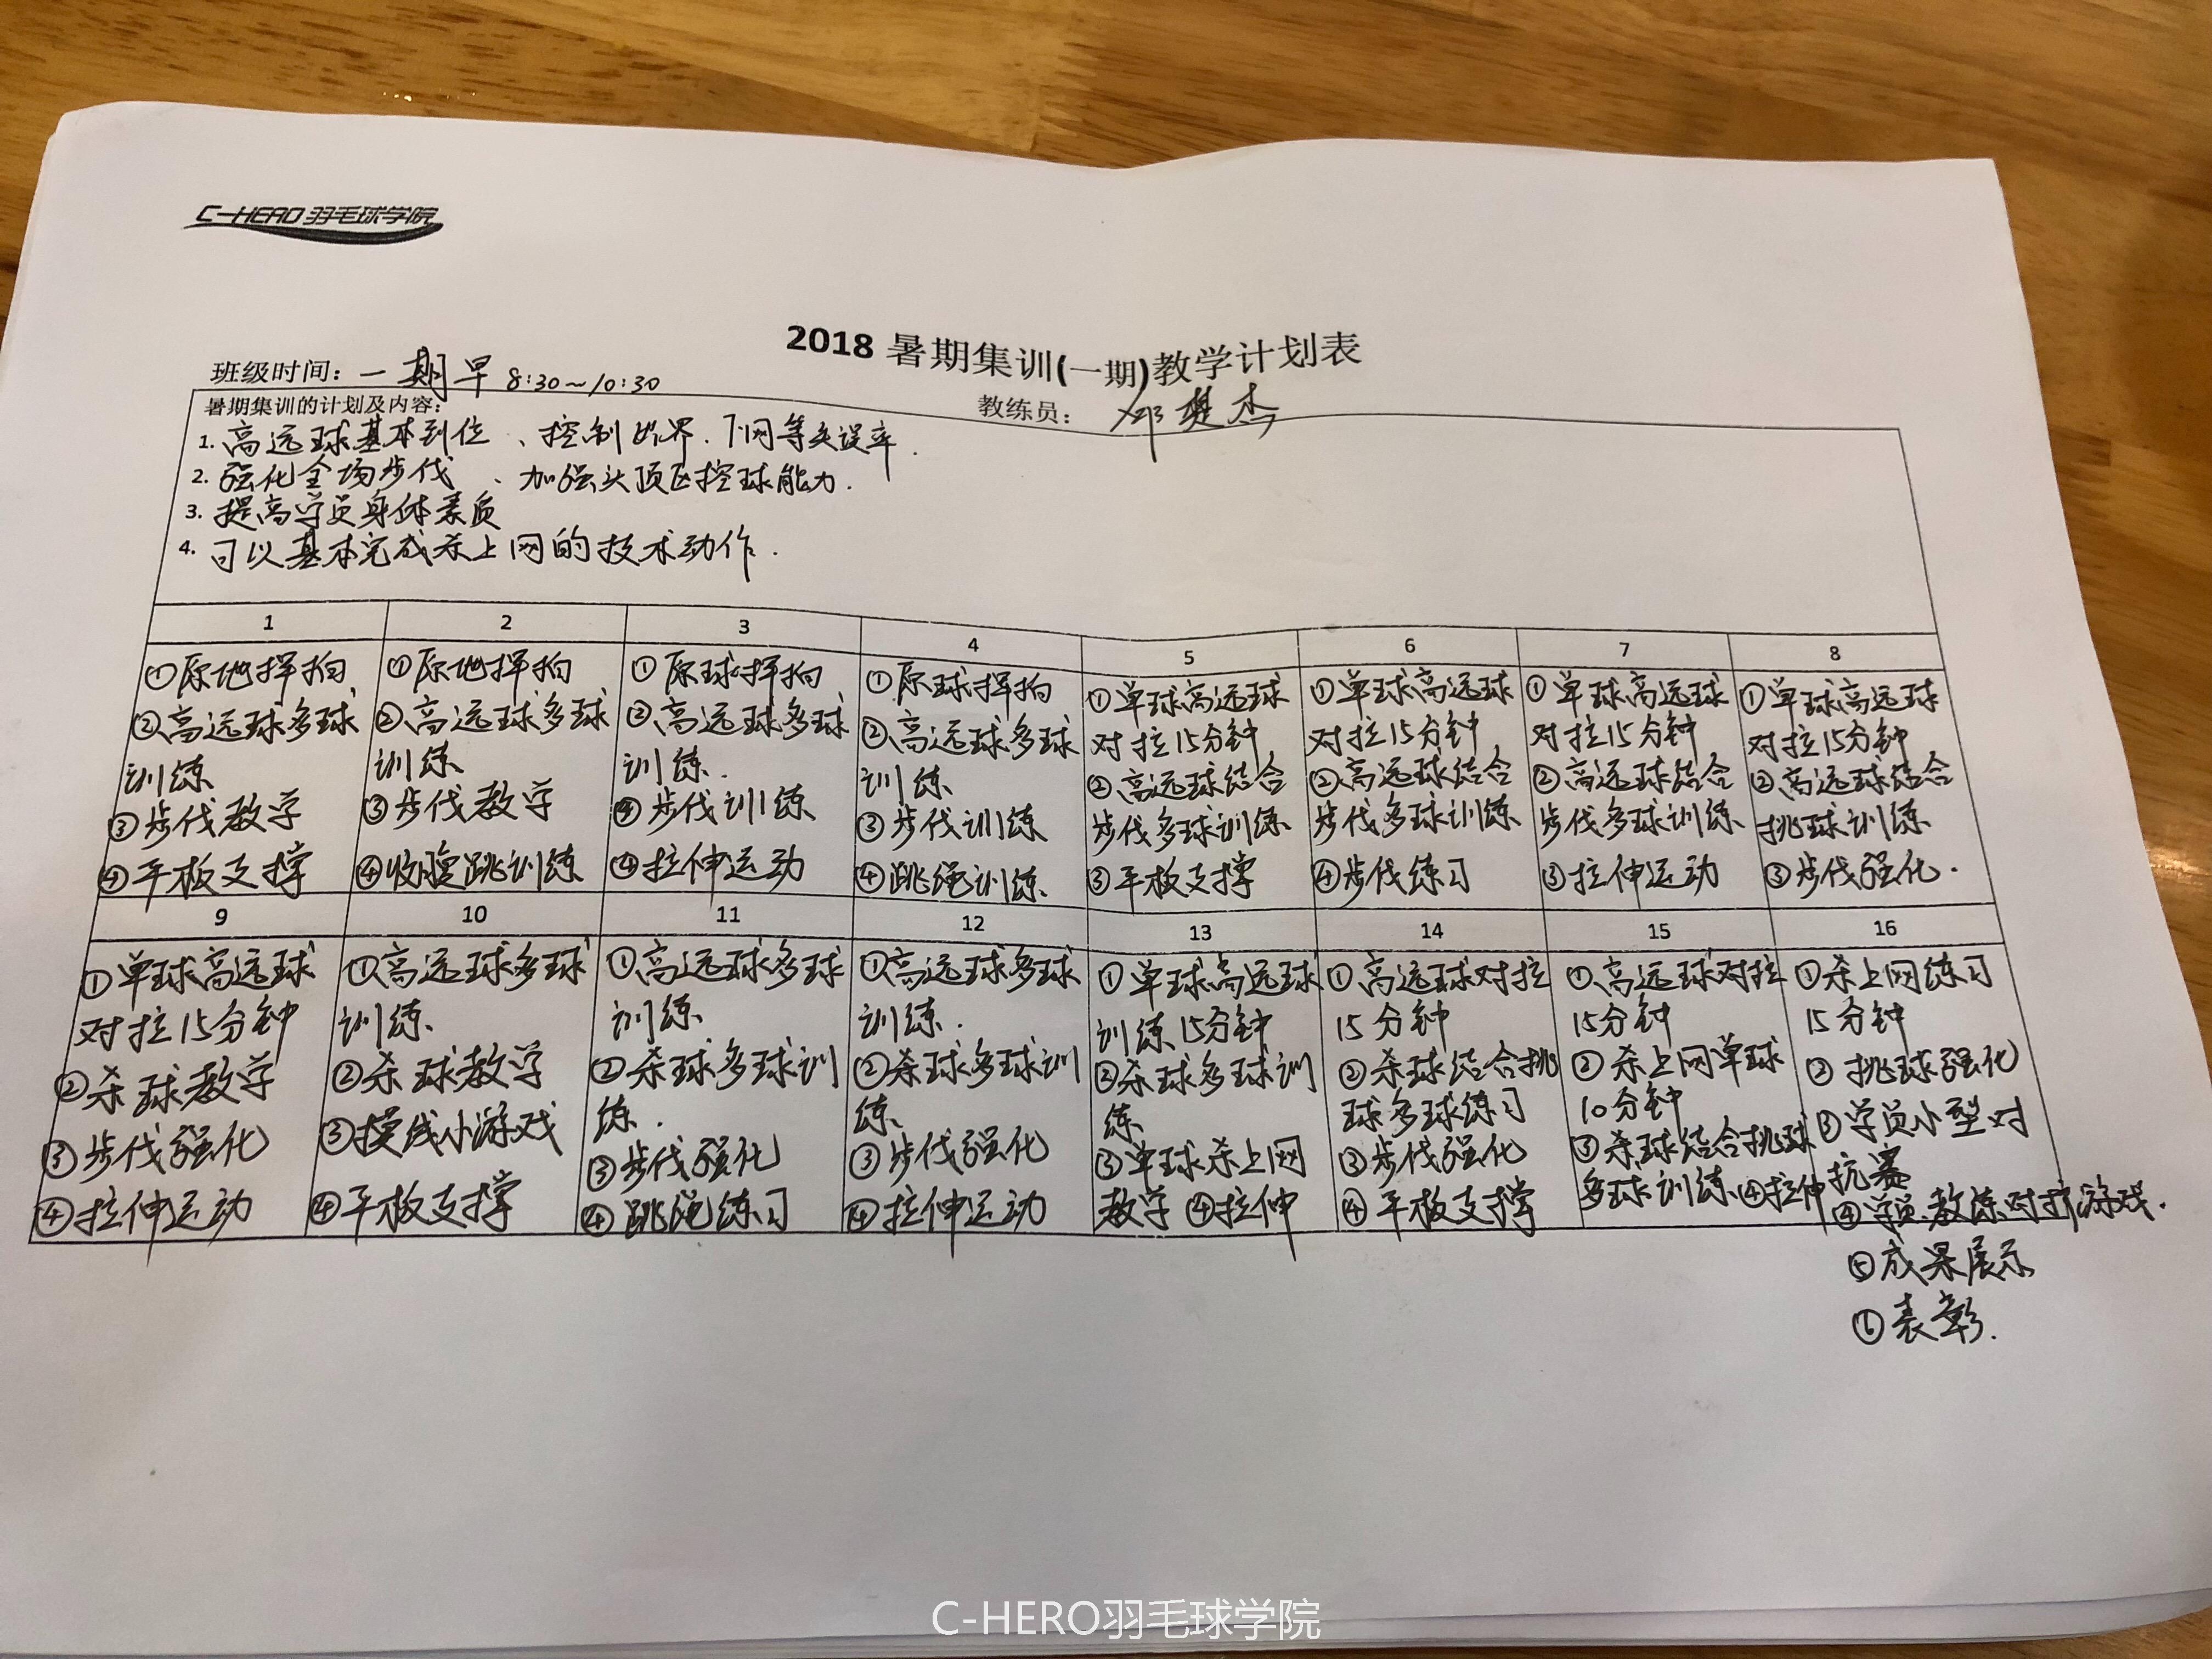 C-HERO 羽毛球学院
2018 暑期集训(一期)教学计划表
班级时间：一期早 8:30~10:30
教练员：
暑期集训的计划及内容：
1. 高远球基本到位、控制出界、下网等失误率.
2. 强化全场步伐、加强头顶区控球能力.
3. 提高学员身体素质
4. 可以基本完成杀上网的技术动作.
1
①原地挥拍
②高远球多球
训练
③步伐教学
④平板支撑
2
①原地挥拍
②高远球多球
训练
③步伐教学
④收腹跳训练
3
①原球挥拍
②高远球多球
训练.
③步伐训练
④拉伸运动
4
①原球挥拍
②高远球多球
训练
③步伐训练
④跳绳训练
5
①单球高远球
对拉15分钟
②高远球结合
步伐多球训练
③平板支撑
6
①单球高远球
对拉15分钟
②高远球结合
步伐多球训练
④步伐练习
7
①单球高远球
对拉15分钟
②高远球结合
步伐多球训练
③拉伸运动
8
①单球高远球
对拉15分钟
②高远球结合
挑球训练
③步伐强化.
9
①单球高远球
对拉15分钟
②杀球教学
③步伐强化
④拉伸运动
10
①高远球多球
训练
②杀球教学
③摸线小游戏
④平板支撑
11
①高远球多球
训练
②杀球多球训
练.
③步伐强化
④跳绳练习
12
①高远球多球
训练.
②杀球多球训
练
③步伐强化
④拉伸运动
13
①单球高远球
训练15分钟
②杀球多球训
练
③单球杀上网
教学 ④拉伸
14
①高远球对拉
15分钟
②杀球结合挑
球多球练习
③步伐强化
④平板支撑
15
①高远球对拉
15分钟
②杀上网单球
10分钟
③杀球结合挑球
多球训练④拉伸
16
①杀上网练习
15分钟
②挑球强化
③学员小型对
抗赛
④学员教练对抗游戏.
⑤成果展示
⑥表彰.
C-HERO羽毛球学院